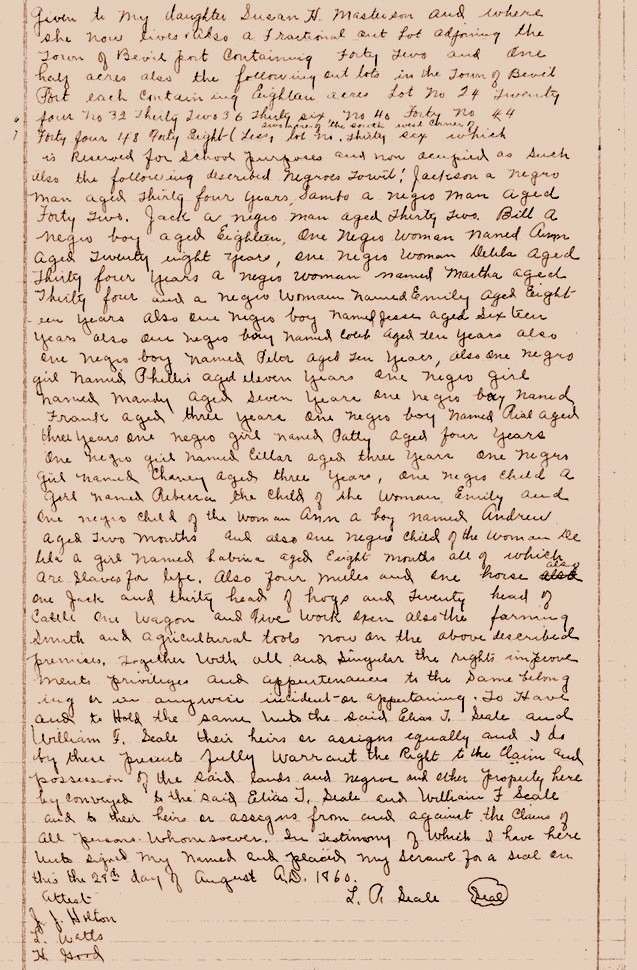 Given to My daughter Susan H. Masterson and where
she now lives also a Fractional out Lot adjoing the
Town of Bevil port Containing Forty Two and One
half acres also the following out lots in the Town of Bevil
Port each containing Eighteen acres Lot No 24 Twenty
four No 32 Thirty Two 36 Thirty six No 40 Forty No 44
Forty four 48 Forty Eight (Less, lot No. Thirty six which
the south west Corner of
is Reserved for School purposes and now ocupied as Such
also the following described Negroes Towit: Jackson a Negro
Man aged Thirty four Years, Sambo a Negro Man Aged
Forty Two. Jack a negro man aged Thirty Two. Bill A
Negro boy aged Eighteen, One Negro Woman named Ann
Aged Twenty eight Years, one Negro Woman Delila Aged
Thirty four Years A Negro Woman named Martha aged
Thirty four and a Negro Woman Named Emily Aged Eight
een Years also One Negro boy Named Jesse aged Six teen
Years also one Negro boy Named Aged ten Years also
one Negro boy Named Peter aged Ten Years, also One Negro
girl Named Phillis aged eleven Years One Negro girl
Named Mandy Aged Seven Years One Negro boy Named
Frank aged three Years One Negro boy Named Rial Aged
three Years One Negro girl Named Patty Aged four Years
One Negro girl Named Cillar aged three Years One Negro
Girl Named Chaney aged three Years, One Negro Child A
Girl Named Rebecca the Child of the Woman Emily and
One negro Child of the Woman Ann a boy Named Andrew
Aged Two Months and also One Negro Child of the Woman De
lila a Girl Named Labina aged Eight Months all of which
Are Slaves for life. Also four Mules and one horse also
One Jack and thirty head of hogs and Twenty head of
Cattle One Wagon and Five Work oxen also the farming
Smith and agricultural tools now on the above described
premises. Together with all and Singular the rights improve
ments privileges and appertenances to the Same belong
ing or in anywise incident or appertaining. To Have
and to Hold the same Unto the said Elias T. Seale and
William F. Seale their heirs or assigns equally and I do
by these presents fully Warrant the Right to the Claim and
possession of the said lands and Negroes and other Property here
by conveyed to the said Elias T. Seale and William F Seale
and to their heirs or assigns from and against the Claims of
All Persons Whomsoever. In Testimony of Which I have here
Unto signed My Named and placed My Scrawl for a Seal on
this the 28th day of August A.D. 1860.
Attest
L. P. Seale Seal
J. J. Holton
L. Watts
H. Good